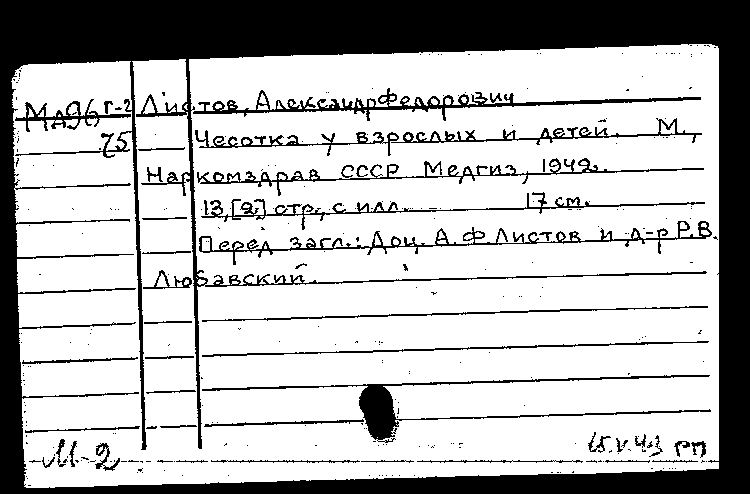 МД96 Г-2 Листов, Александр Федорович
75 Чесотка у взрослых и детей. М.,
Наркомздрав СССР Медгиз, 1942.
13,[2] стр., с илл. 17 см.
Перед загл.: Доц. А.Ф.Листов и д-р Р.В.
Любавский.
М-2 15.V.43 РП